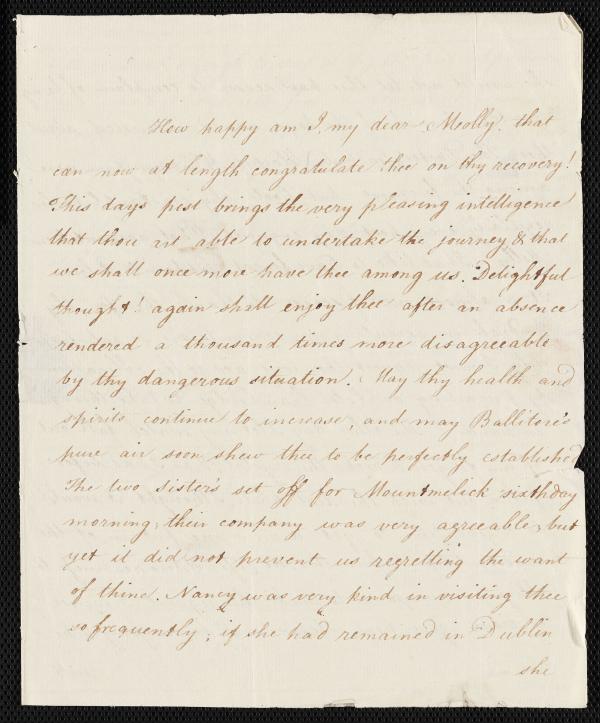 How happy am I, my dear Molly, that
can now at length congratulate thee on thy recovery!
This days post brings the very pleasing intelligence
that thou art able to undertake the journey & that
we shall once more have thee among us. Delightful
thought! again shall enjoy thee after an absence
rendered a thousand times more disagreeable
by thy dangerous situation. May thy health and
spirits continue to increase, and may Ballitore's
pure air soon shew thee to be perfectly established
The two sister's set off for Mountmelick sixthday
morning, their company was very agreeable, but
yet it did not prevent us regretting the want
of thine. Nancy was very kind in visiting thee
so frequently; if she had remained in Dublin
she